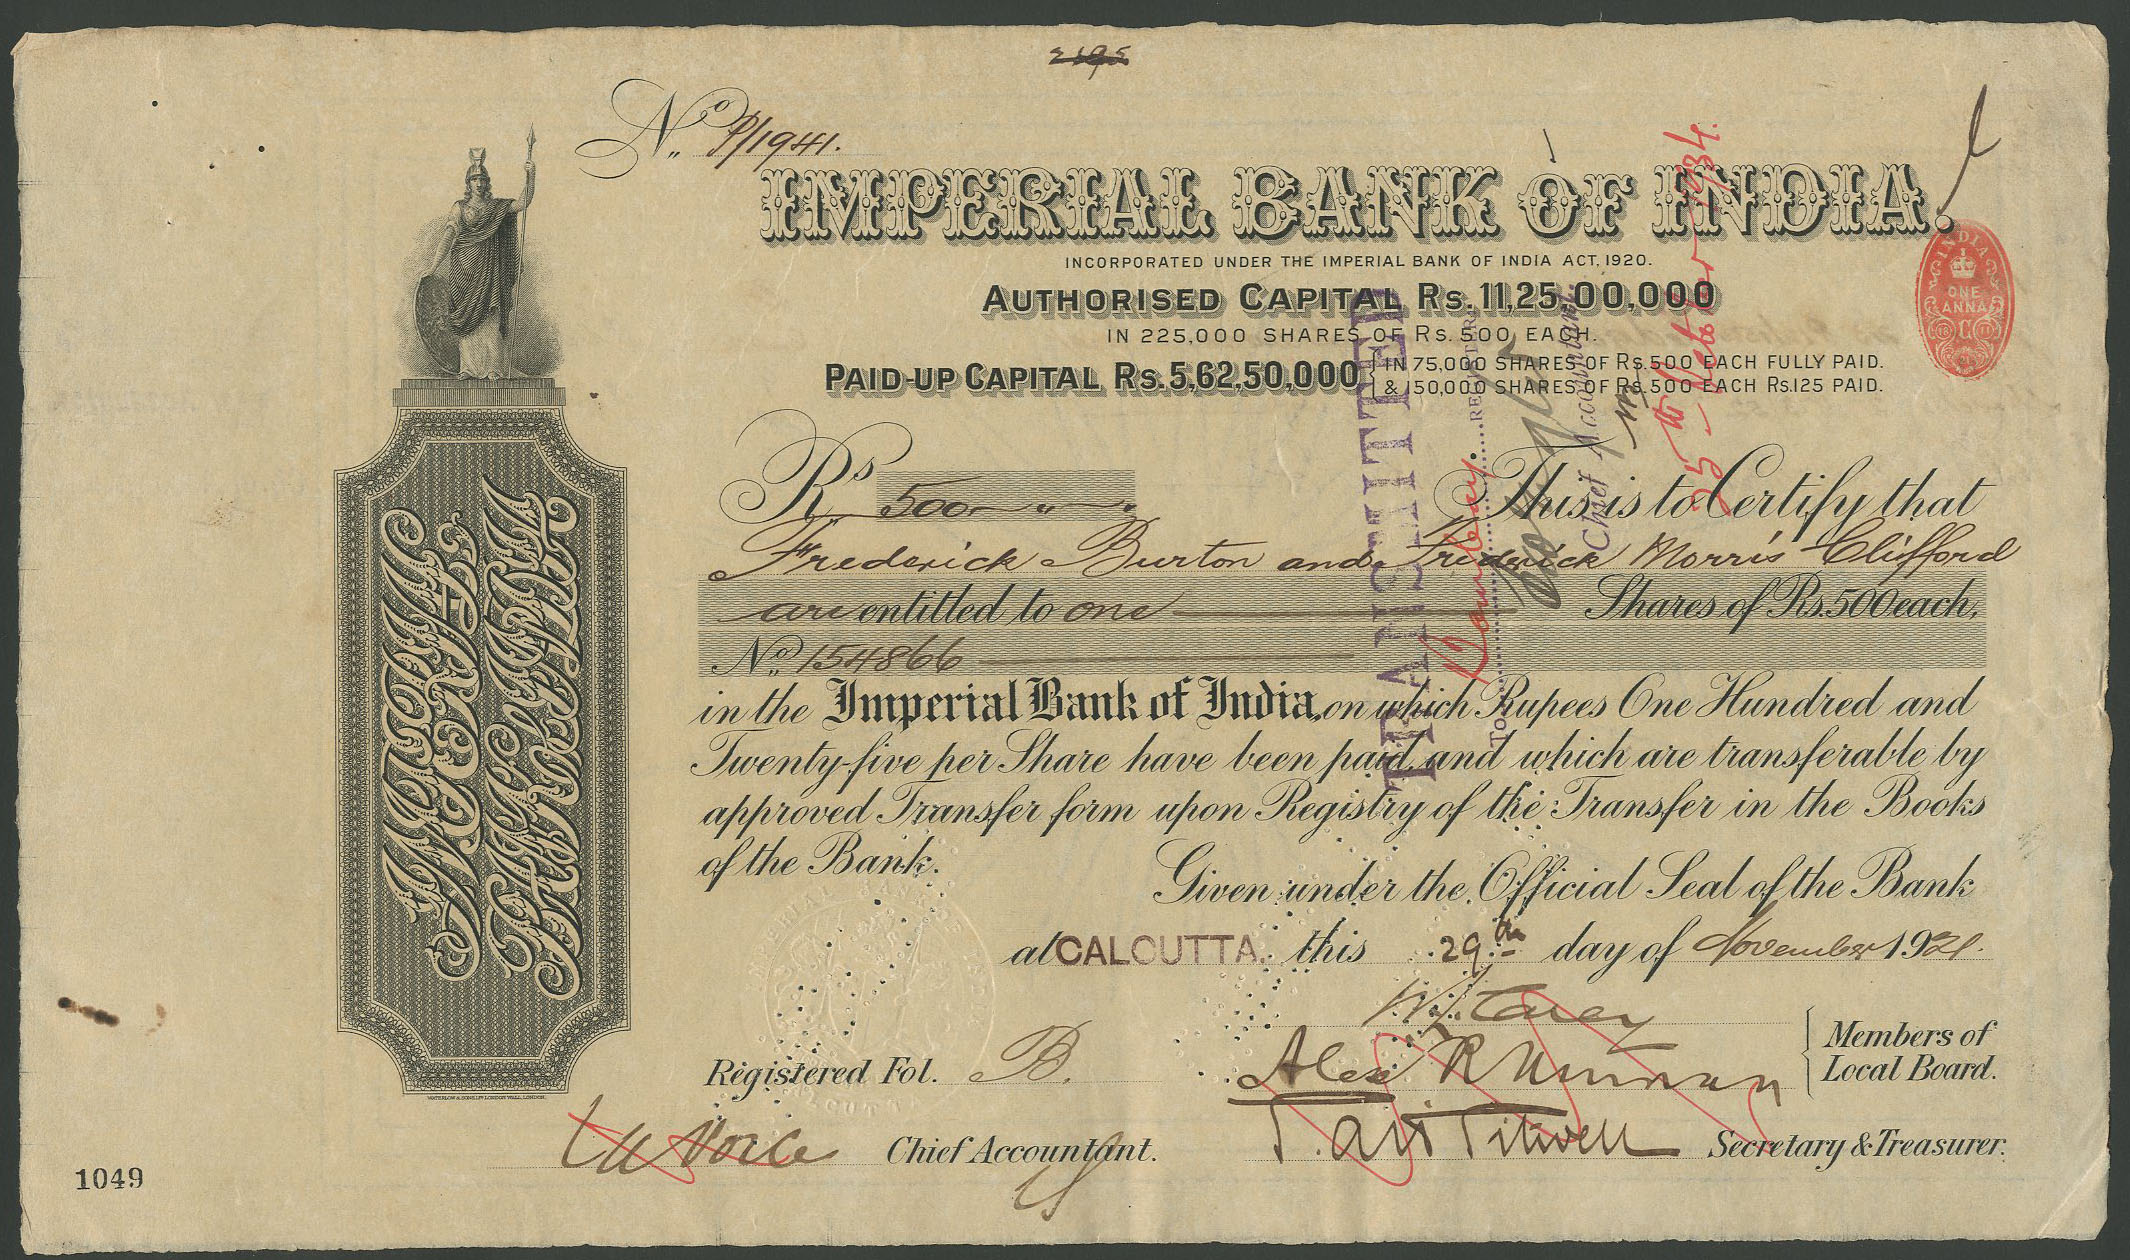 No. P/1941.
IMPERIAL BANK OF INDIA.
INCORPORATED UNDER THE IMPERIAL BANK OF INDIA ACT, 1920.
AUTHORISED CAPITAL Rs. 11,25,00,000
IN 225,000 SHARES OF Rs. 500 EACH.
PAID-UP CAPITAL Rs. 5,62,50,000 { IN 75,000 SHARES OF Rs. 500 EACH FULLY PAID.
& 150,000 SHARES OF Rs. 500 EACH Rs. 125 PAID.
INDIA
ONE
ANNA
Rs 500 This is to Certify that
Frederick Burton and Frederick Morris Clifford
are entitled to one Shares of Rs. 500 each,
No. 154866
in the Imperial Bank of India, on which Rupees One Hundred and
Twenty-five per Share have been paid, and which are transferable by
approved Transfer form upon Registry of the Transfer in the Books
of the Bank.
Given under the Official Seal of the Bank
at CALCUTTA. this 29th day of November 1921.
Members of
Local Board.
Registered Fol. B.
Chief Accountant.
Secretary & Treasurer.
1049
IMPERIAL
BANK OF INDIA
WATERLOW & SONS LTD LONDON WALL, LONDON.
TRANSMITTED
To Bombay REGISTER
Chief Accountant.
25th October 1934.